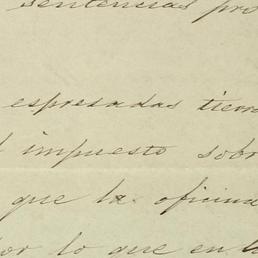 sentencias pro
espresadas tierra
l impuesto sobr
que la oficina
por lo que en la